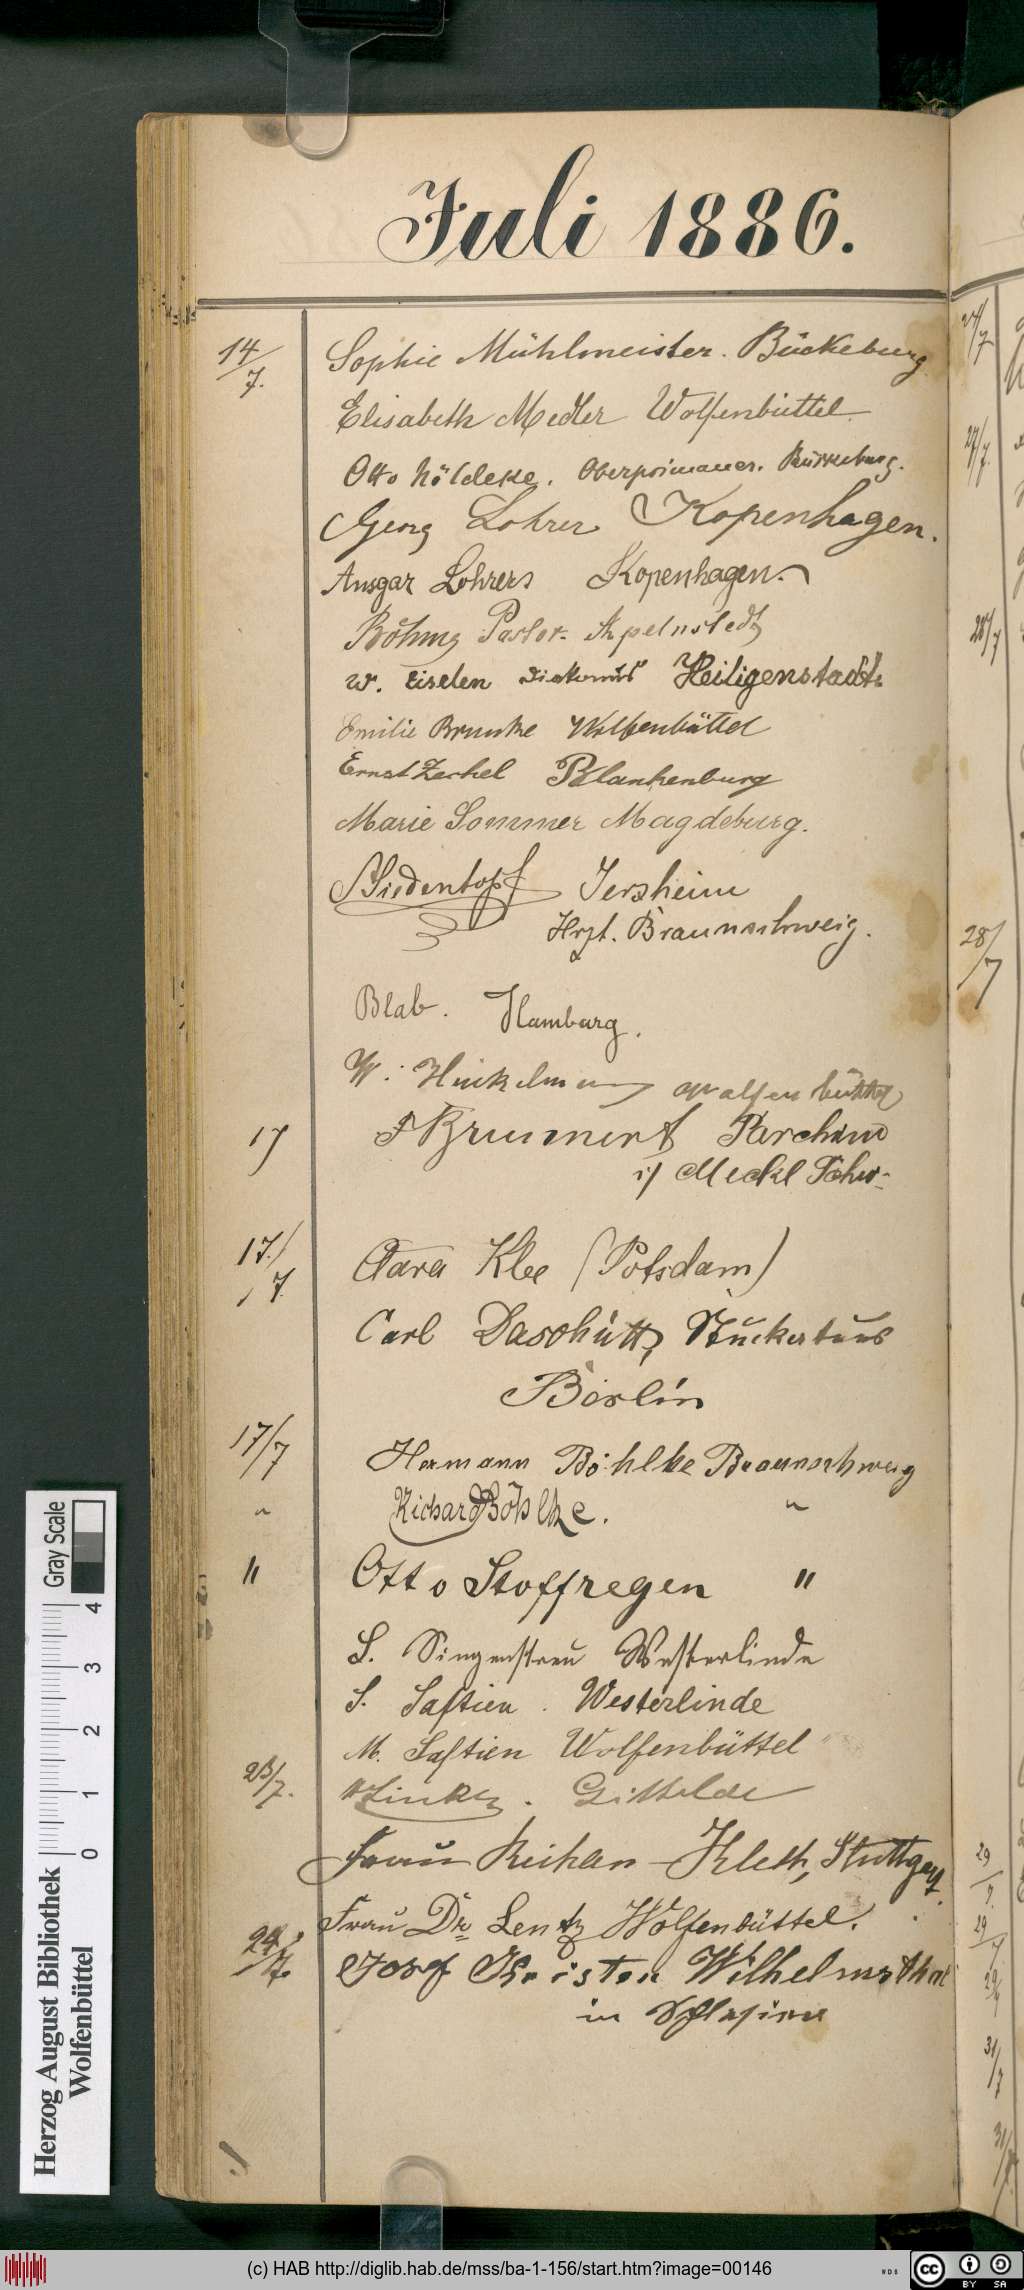 Juli 1886.
14/7. Sophie Mühlmeister. Bückeburg
Elisabeth Medler Wolfenbüttel.
Otto Nöldeke. Oberprimaner. Bückeburg.
Georg Lohrer Kopenhagen.
Ansgar Lohrers Kopenhagen.
Böhme Pastor. Apelnstedt
W. Eiselen Diakonus Heiligenstadt.
Emilie Brunke Wolfenbüttel
Ernst Zerkel Blankenburg
Marie Sommer Magdeburg.
Siedentopf Jerxheim
Hrzt. Braunschweig.
Blab. Hamburg.
W. Hinkelmann Wolfenbüttel
17 F Brummert Parchim
i/ Meckl Schw.
17./7. Clara Klee (Potsdam)
Carl Daschütt, Stuckateur
Berlin
17/7 Hermann Böhlke Braunschweig
" Richard Böhlke. "
" Otto Stoffregen "
S. Singenstreu Westerlinde
S. Saftien. Westerlinde
M. Saftien Wolfenbüttel
23/7. Zincke. Gittelde
Frau Kleth, Stuttgart.
Frau Dr. Lentz Wolfenbüttel.
24/7. Josef Wilhelmsthal
in Schlesien
24/7
27/7.
28/7
28/7
29/7.
29/7
29/7
31/7
31/7
Herzog August Bibliothek
Wolfenbüttel
Gray Scale
0 1 2 3 4
(c) HAB http://diglib.hab.de/mss/ba-1-156/start.htm?image=00146
WDB
cc BY SA